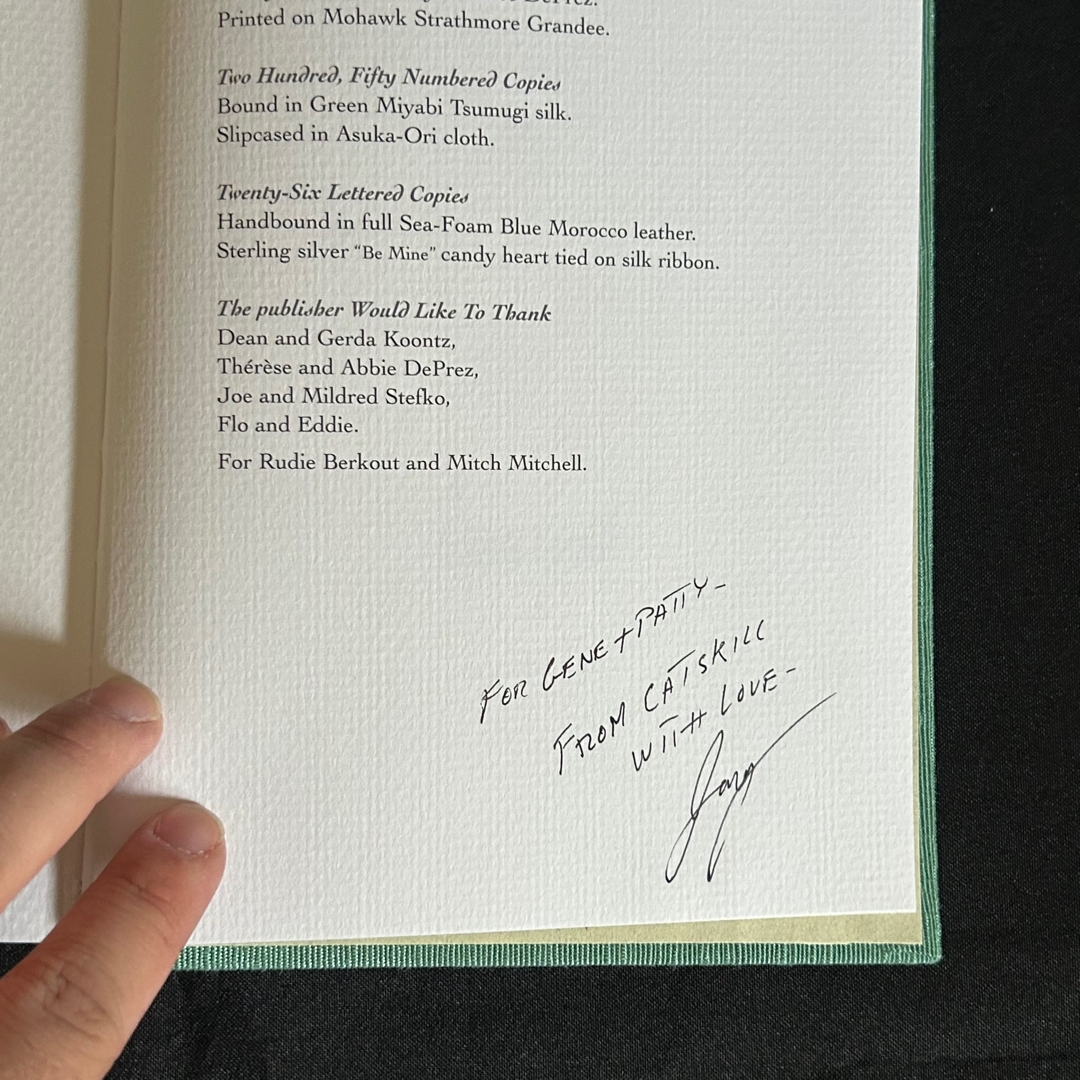 Printed on Mohawk Strathmore Grandee.
Two Hundred, Fifty Numbered Copies
Bound in Green Miyabi Tsumugi silk.
Slipcased in Asuka-Ori cloth.
Twenty-Six Lettered Copies
Handbound in full Sea-Foam Blue Morocco leather.
Sterling silver “Be Mine” candy heart tied on silk ribbon.
The publisher Would Like To Thank
Dean and Gerda Koontz,
Thérèse and Abbie DePrez,
Joe and Mildred Stefko,
Flo and Eddie.
For Rudie Berkout and Mitch Mitchell.
FOR GENE + PATTY -
FROM CATSKILL
WITH LOVE -